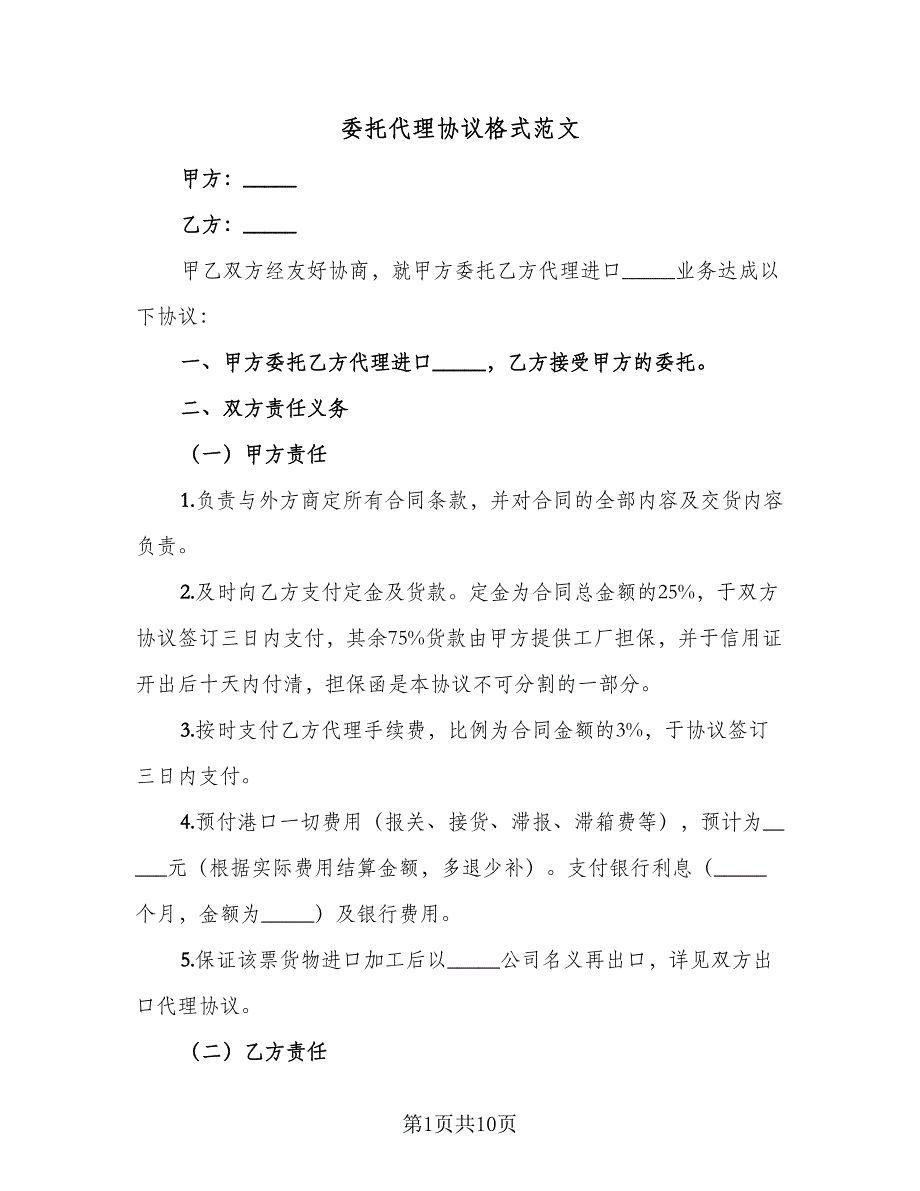 委托代理协议格式范文
甲方：_____
乙方：_____
甲乙双方经友好协商，就甲方委托乙方代理进口_____业务达成以
下协议：
一、甲方委托乙方代理进口_____，乙方接受甲方的委托。
二、双方责任义务
（一）甲方责任
1.负责与外方商定所有合同条款，并对合同的全部内容及交货内容
负责。
2.及时向乙方支付定金及货款。定金为合同总金额的25%，于双方
协议签订三日内支付，其余75%货款由甲方提供工厂担保，并于信用证
开出后十天内付清，担保函是本协议不可分割的一部分。
3.按时支付乙方代理手续费，比例为合同金额的3%，于协议签订
三日内支付。
4.预付港口一切费用（报关、接货、滞报、滞箱费等），预计为__
___元（根据实际费用结算金额，多退少补）。支付银行利息（_____
个月，金额为_____）及银行费用。
5.保证该票货物进口加工后以_____公司名义再出口，详见双方出
口代理协议。
（二）乙方责任
第1页共10页